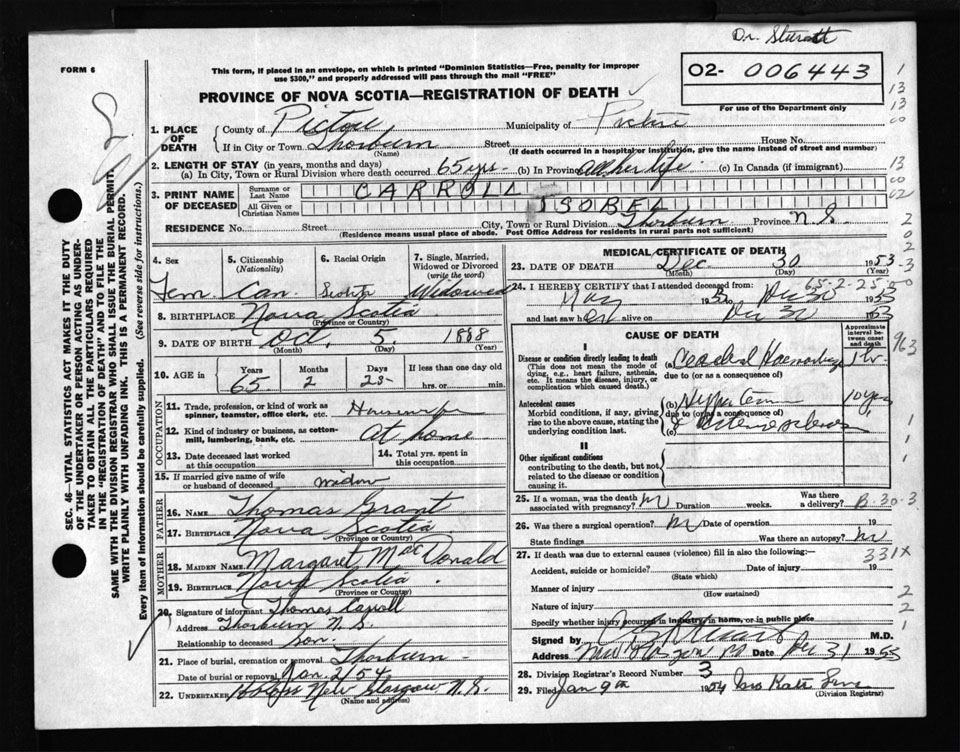 Dr.
FORM 6
This form, if placed in an envelope, on which is printed "Dominion Statistics—Free, penalty for improper use $300," and properly addressed will pass through the mail "FREE"
O2- 006443
PROVINCE OF NOVA SCOTIA—REGISTRATION OF DEATH
For use of the Department only
1. PLACE OF DEATH
County of Pictou Municipality of Pictou
If in City or Town Thorburn Street House No.
(Name) (If death occurred in a hospital or institution, give the name instead of street and number)
2. LENGTH OF STAY (in years, months and days)
(a) In City, Town or Rural Division where death occurred 65 yrs. (b) In Province all her life (c) In Canada (if immigrant)
3. PRINT NAME OF DECEASED
Surname or Last Name CARROLL
All Given or Christian Names ISOBEL
RESIDENCE No. Street City, Town or Rural Division Thorburn Province N.S.
(Residence means usual place of abode. Post Office Address for residents in rural parts not sufficient)
4. Sex Fem.
5. Citizenship (Nationality) Can.
6. Racial Origin Scotch
7. Single, Married, Widowed or Divorced (write the word) Widowed
8. BIRTHPLACE Nova Scotia
(Province or Country)
9. DATE OF BIRTH Oct. 5. 1888
(Month) (Day) (Year)
10. AGE in Years Months Days If less than one day old
65 2 25 hrs. or min.
OCCUPATION
11. Trade, profession, or kind of work as spinner, teamster, office clerk, etc. Housewife
12. Kind of industry or business, as cotton-mill, lumbering, bank, etc. At home
13. Date deceased last worked at this occupation
14. Total yrs. spent in this occupation
15. If married give name of wife or husband of deceased widow
FATHER
16. NAME Thomas Grant
17. BIRTHPLACE Nova Scotia
(Province or Country)
MOTHER
18. MAIDEN NAME Margaret MacDonald
19. BIRTHPLACE Nova Scotia
(Province or Country)
20. Signature of informant Thomas Carroll
Address Thorburn N.S.
Relationship to deceased Son.
21. Place of burial, cremation or removal Thorburn
Date of burial or removal Jan. 2/54
22. UNDERTAKER New Glasgow N.S.
(Name and address)
MEDICAL CERTIFICATE OF DEATH
23. DATE OF DEATH Dec 30 1953
(Month) (Day) (Year)
65-2-25
24. I HEREBY CERTIFY that I attended deceased from:
May 1953 to Dec 30 1953
and last saw her alive on Dec 30 1953
CAUSE OF DEATH
Approximate interval between onset and death
I
Disease or condition directly leading to death
(This does not mean the mode of dying, e.g., heart failure, asthenia, etc. It means the disease, injury, or complication which caused death.)
(a) Cerebral Haemorrhage 1 hr
due to (or as a consequence of)
Antecedent causes
Morbid conditions, if any, giving rise to the above cause, stating the underlying condition last.
(b) 10 years
due to (or as a consequence of)
(c) & Arteriosclerosis
II
Other significant conditions
contributing to the death, but not related to the disease or condition causing it.
25. If a woman, was the death associated with pregnancy? N Duration weeks. Was there a delivery?
B-30-3
26. Was there a surgical operation? No Date of operation 19
State findings Was there an autopsy? No
27. If death was due to external causes (violence) fill in also the following:—
331X
Accident, suicide or homicide? Date of injury 19
(State which)
Manner of injury
(How sustained)
Nature of injury
Specify whether injury occurred in industry, in home, or in public place
Signed by M.D.
Address New Glasgow NS Date Dec 31 1953
28. Division Registrar's Record Number 3
29. Filed Jan 9th 1954
(Division Registrar)
SEC. 46—VITAL STATISTICS ACT MAKES IT THE DUTY OF THE UNDERTAKER OR PERSON ACTING AS UNDERTAKER TO OBTAIN ALL THE PARTICULARS REQUIRED IN THE "REGISTRATION OF DEATH" AND TO FILE THE SAME WITH THE DIVISION REGISTRAR WHO SHALL ISSUE THE BURIAL PERMIT.
WRITE PLAINLY WITH UNFADING INK. THIS IS A PERMANENT RECORD.
Every item of information should be carefully supplied. (See reverse side for instructions).
1
13
13
60
13
60
62
2
0
2
-3
963
1
1
1
2
2
1